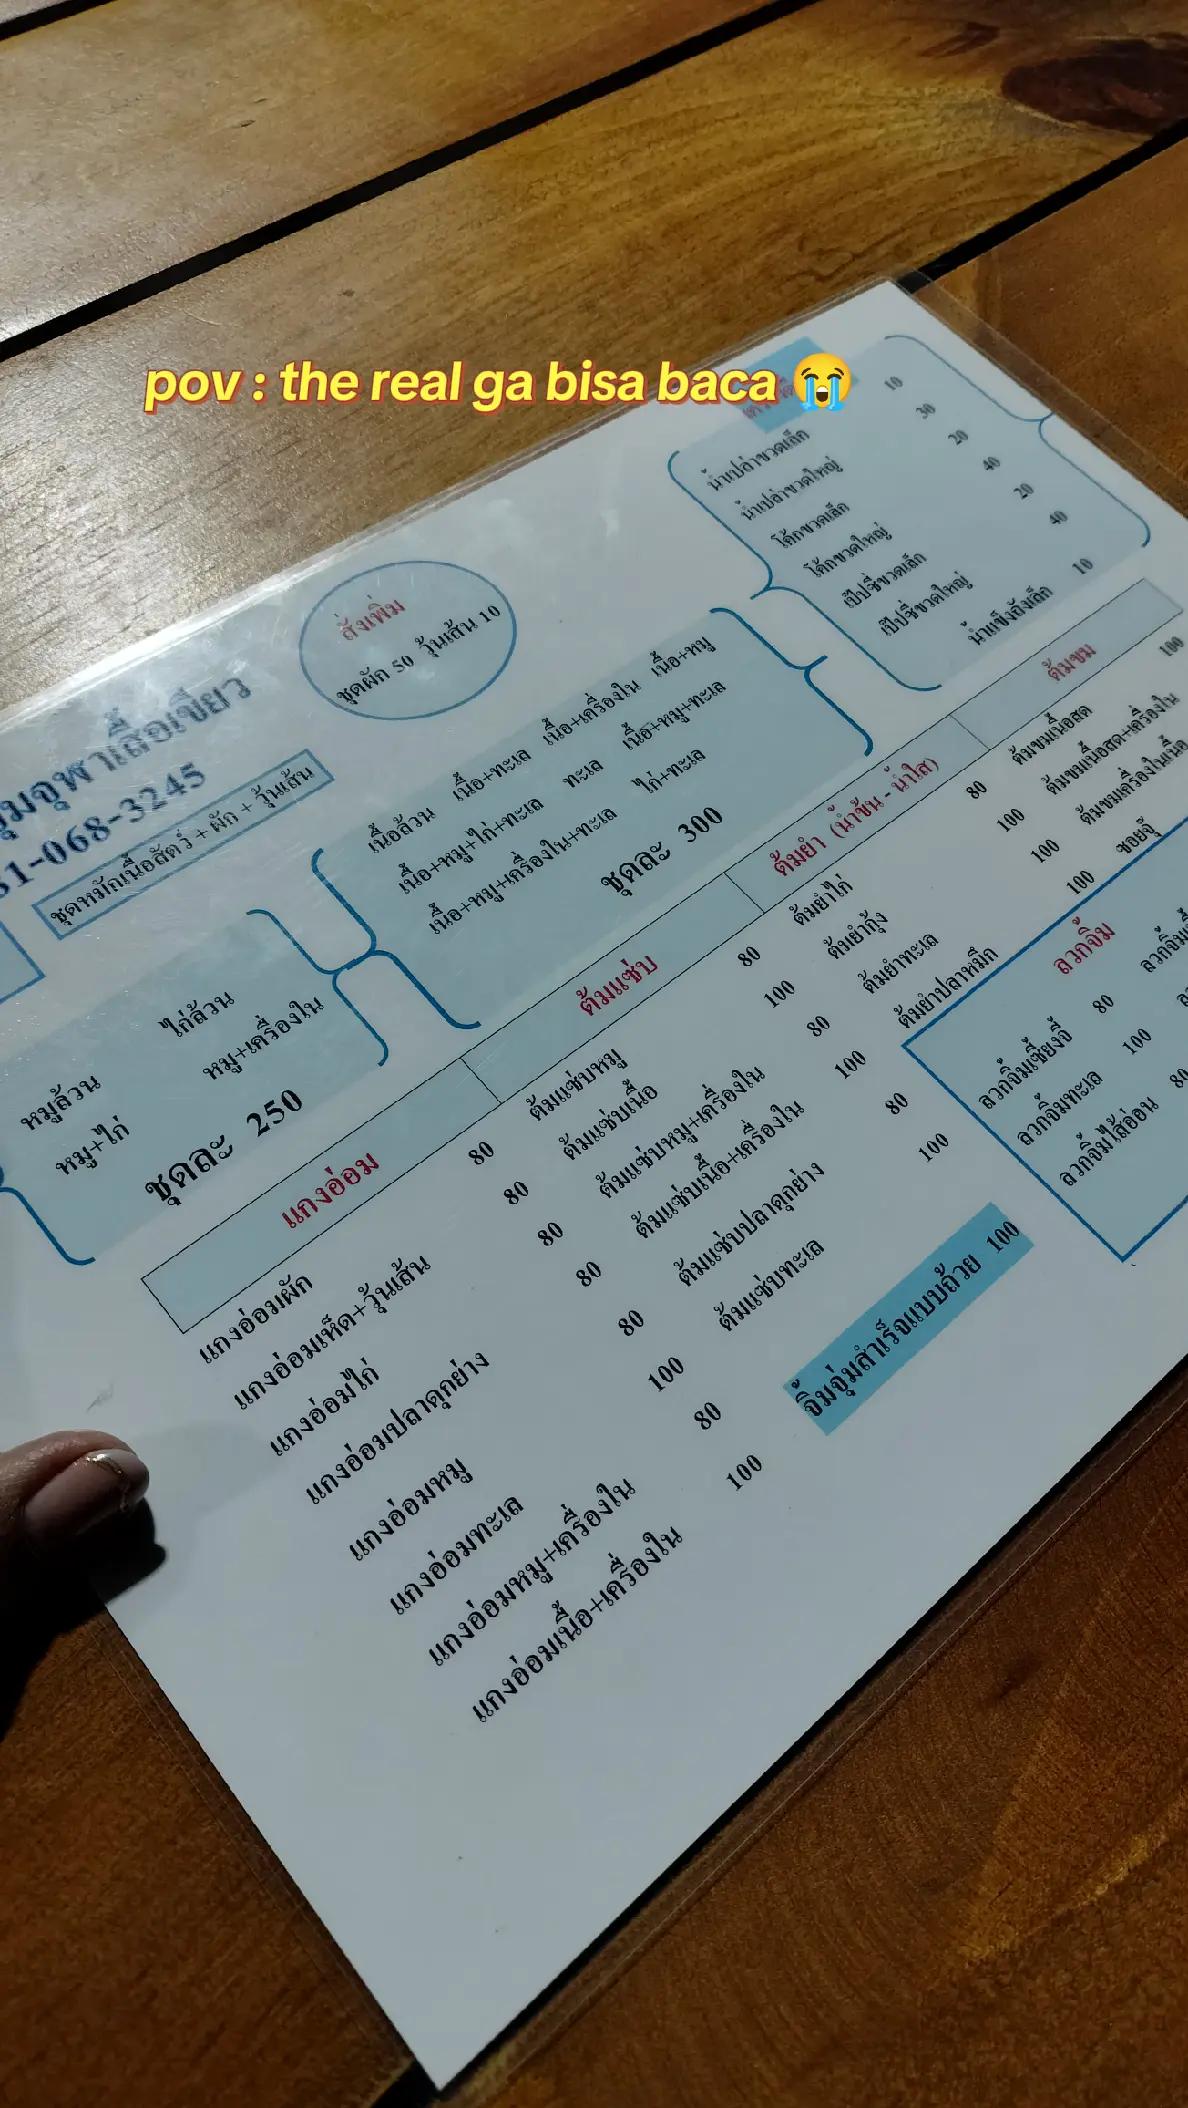 pov : the real ga bisa baca 😭
น้ำเปล่าขวดเล็ก 10
น้ำเปล่าขวดใหญ่ 30
โค้กขวดเล็ก 20
โค้กขวดใหญ่ 40
เป๊ปซี่ขวดเล็ก 20
เป๊ปซี่ขวดใหญ่ 40
น้ำแข็งถังเล็ก 10
สั่งเพิ่ม
ชุดผัก 50 วุ้นเส้น 10
จุ่มจุฬาเสื้อเขียว
81-068-3245
ชุดหมักเนื้อสัตว์ + ผัก + วุ้นเส้น
เนื้อล้วน เนื้อ+ทะเล เนื้อ+เครื่องใน เนื้อ+หมู
เนื้อ+หมู+ไก่+ทะเล ทะเล เนื้อ+หมู+ทะเล
เนื้อ+หมู+เครื่องใน+ทะเล ไก่+ทะเล
ชุดละ 300
หมูล้วน ไก่ล้วน
หมู+ไก่ หมู+เครื่องใน
ชุดละ 250
แกงอ่อม
แกงอ่อมผัก 80
แกงอ่อมเห็ด+วุ้นเส้น 80
แกงอ่อมไก่ 80
แกงอ่อมปลาดุกย่าง 80
แกงอ่อมหมู 80
แกงอ่อมทะเล 100
แกงอ่อมหมู+เครื่องใน 80
แกงอ่อมเนื้อ+เครื่องใน 100
ต้มแซ่บ
ต้มแซ่บหมู 80
ต้มแซ่บเนื้อ 100
ต้มแซ่บหมู+เครื่องใน 80
ต้มแซ่บเนื้อ+เครื่องใน 100
ต้มแซ่บปลาดุกย่าง 80
ต้มแซ่บทะเล 100
ต้มยำ (น้ำข้น - น้ำใส)
ต้มยำไก่ 80
ต้มยำกุ้ง 100
ต้มยำทะเล 100
ต้มยำปลาหมึก 100
ต้มขม
ต้มขมเนื้อสด 100
ต้มขมเนื้อสด+เครื่องใน
ต้มขมเครื่องในเนื้อ
ซอยจุ๊
ลวกจิ้ม
ลวกจิ้มเซี่ยงจี้ 80
ลวกจิ้มทะเล 100
ลวกจิ้มไส้อ่อน 80
จิ้มจุ่มสำเร็จแบบถ้วย 100